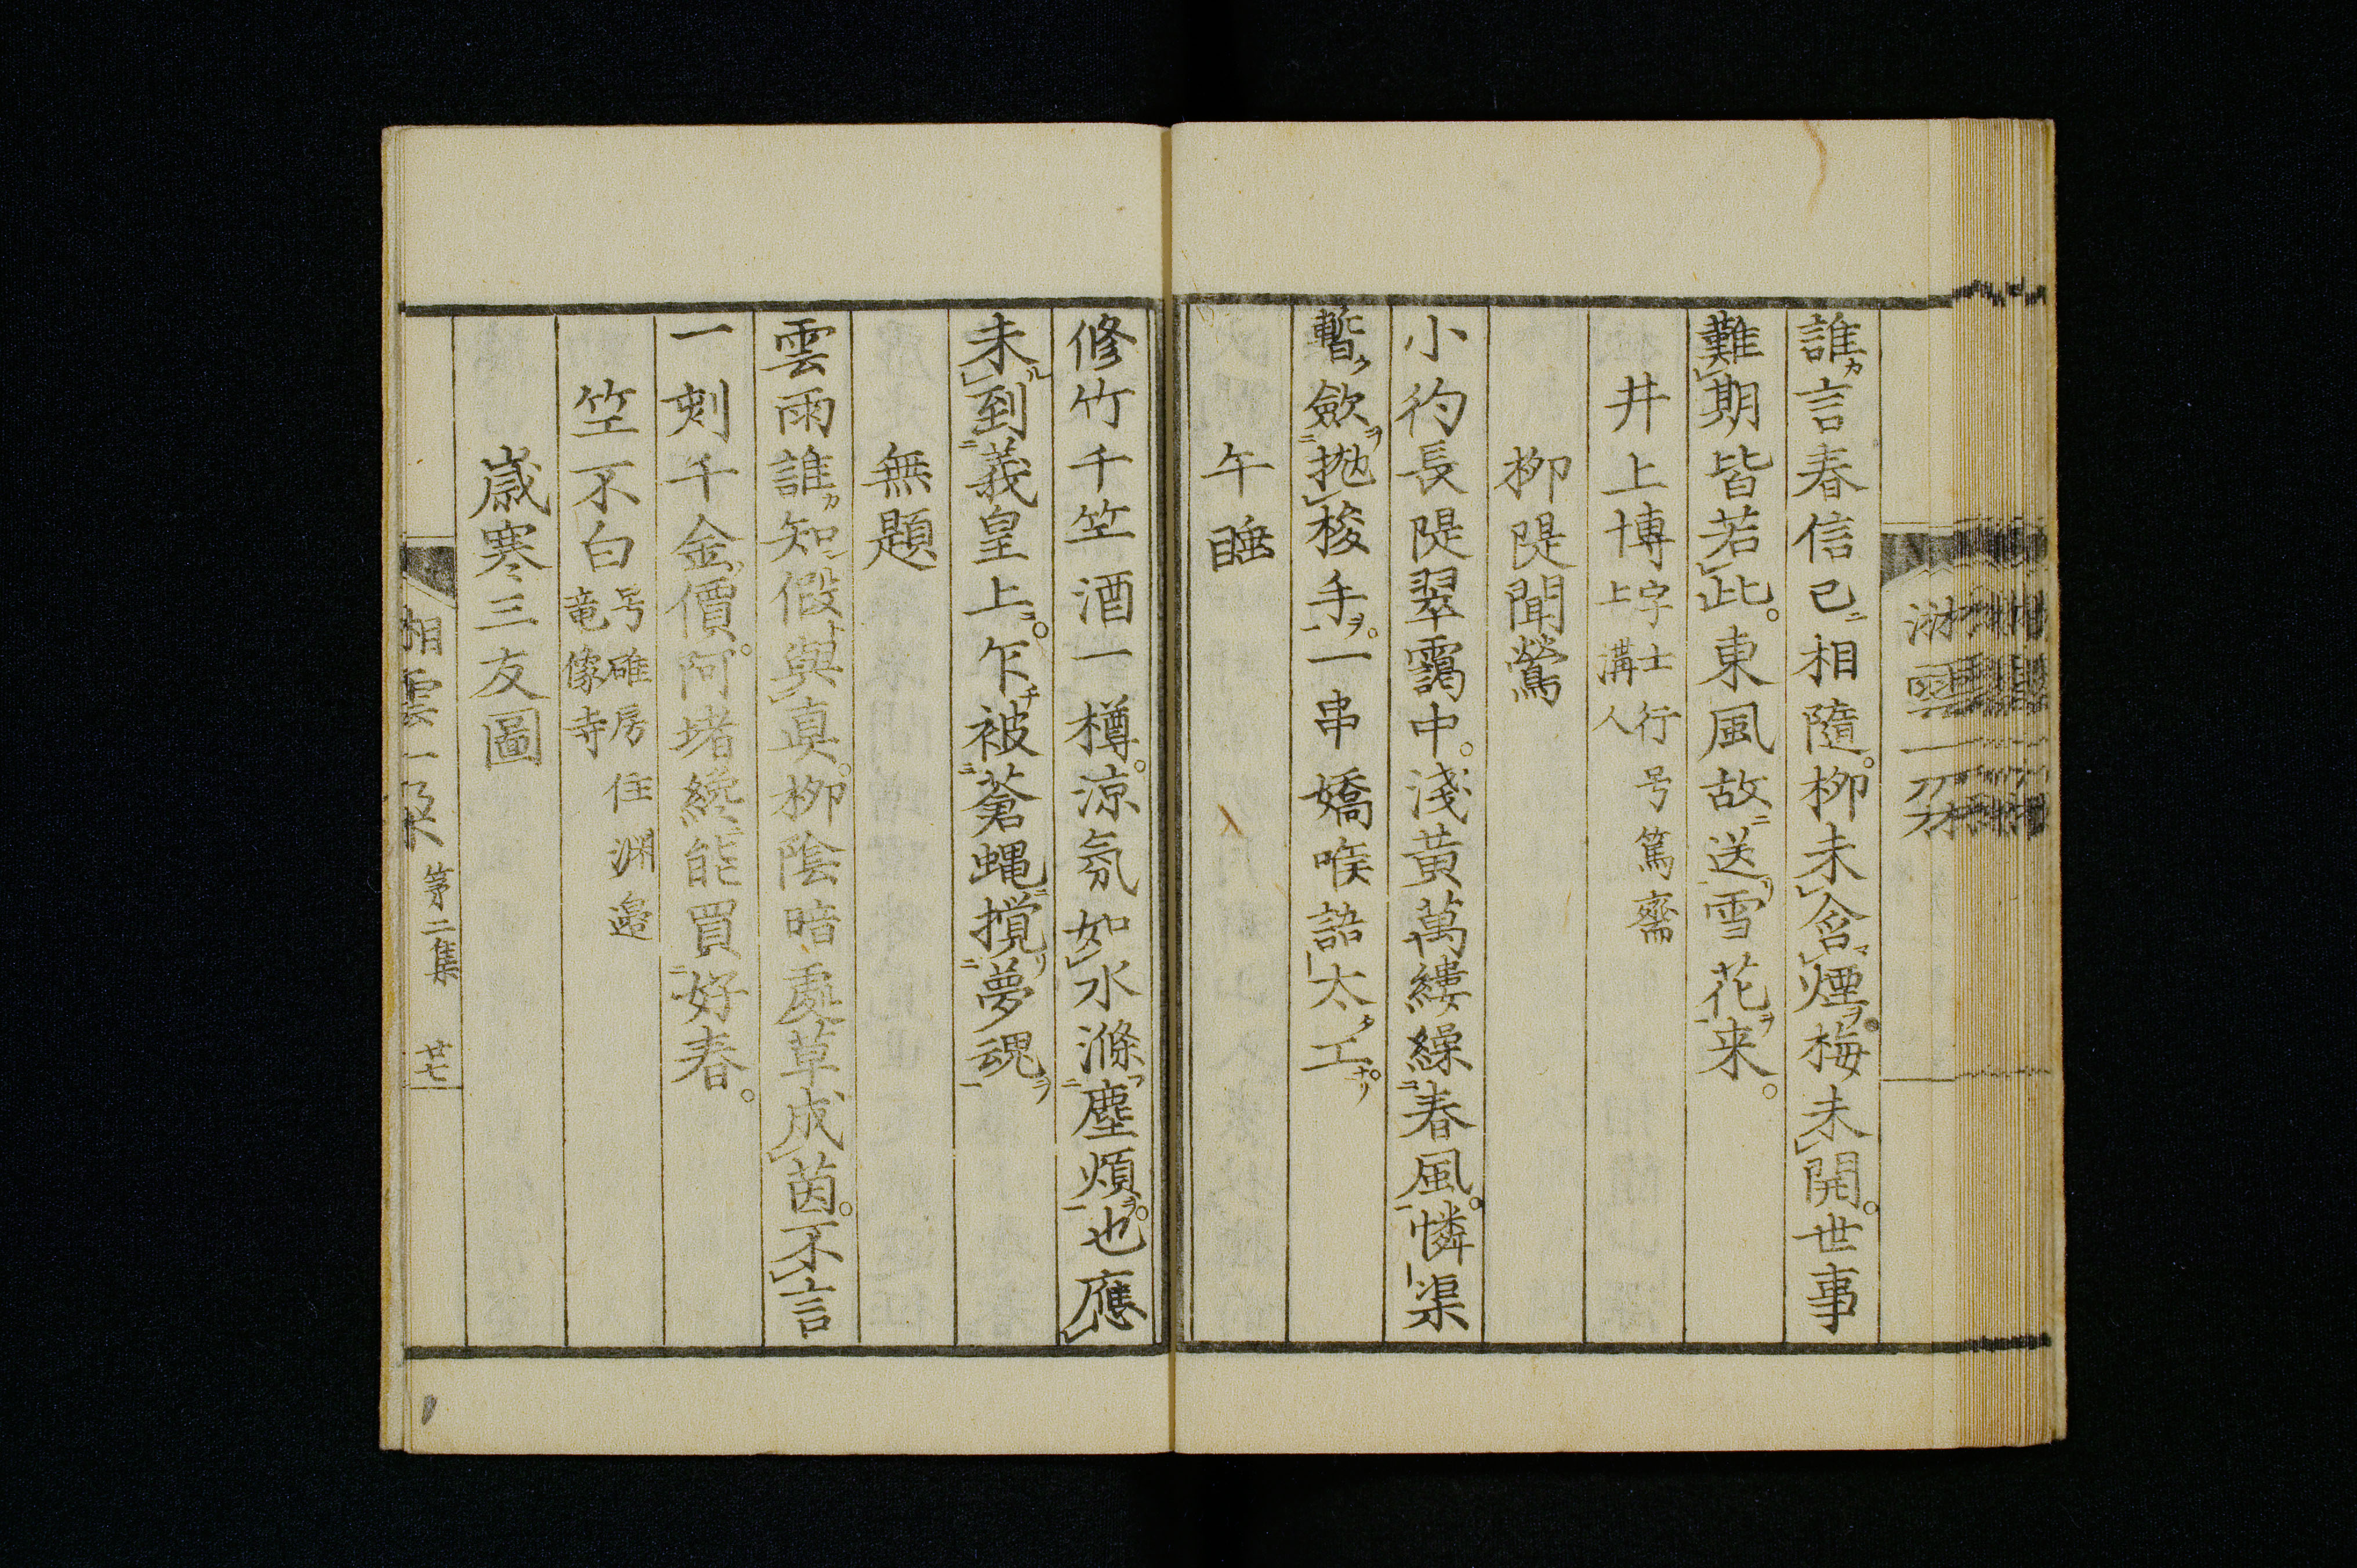 誰言春信已相隨。柳未含煙。梅未開。世事
難期皆若此。東風故送雪花来。
井上博字士行 号篤齋
上溝人
柳隄聞鶯
小彴長隄翠靄中。淺黄萬縷繰春風。憐渠
暫歛拋梭手。一串嬌喉語太工。
午睡
修竹千竺酒一樽。涼氛如水滌塵煩。也應
未到羲皇上。乍被蒼蝿攪夢魂
無題
雲雨誰知假與真。柳陰暗處草成茵。不言
一刻千金價。阿堵纔能買好春。
竺不白号碓房 住淵邉
竜像寺
歳寒三友圖
相雲一
第二集 廿七